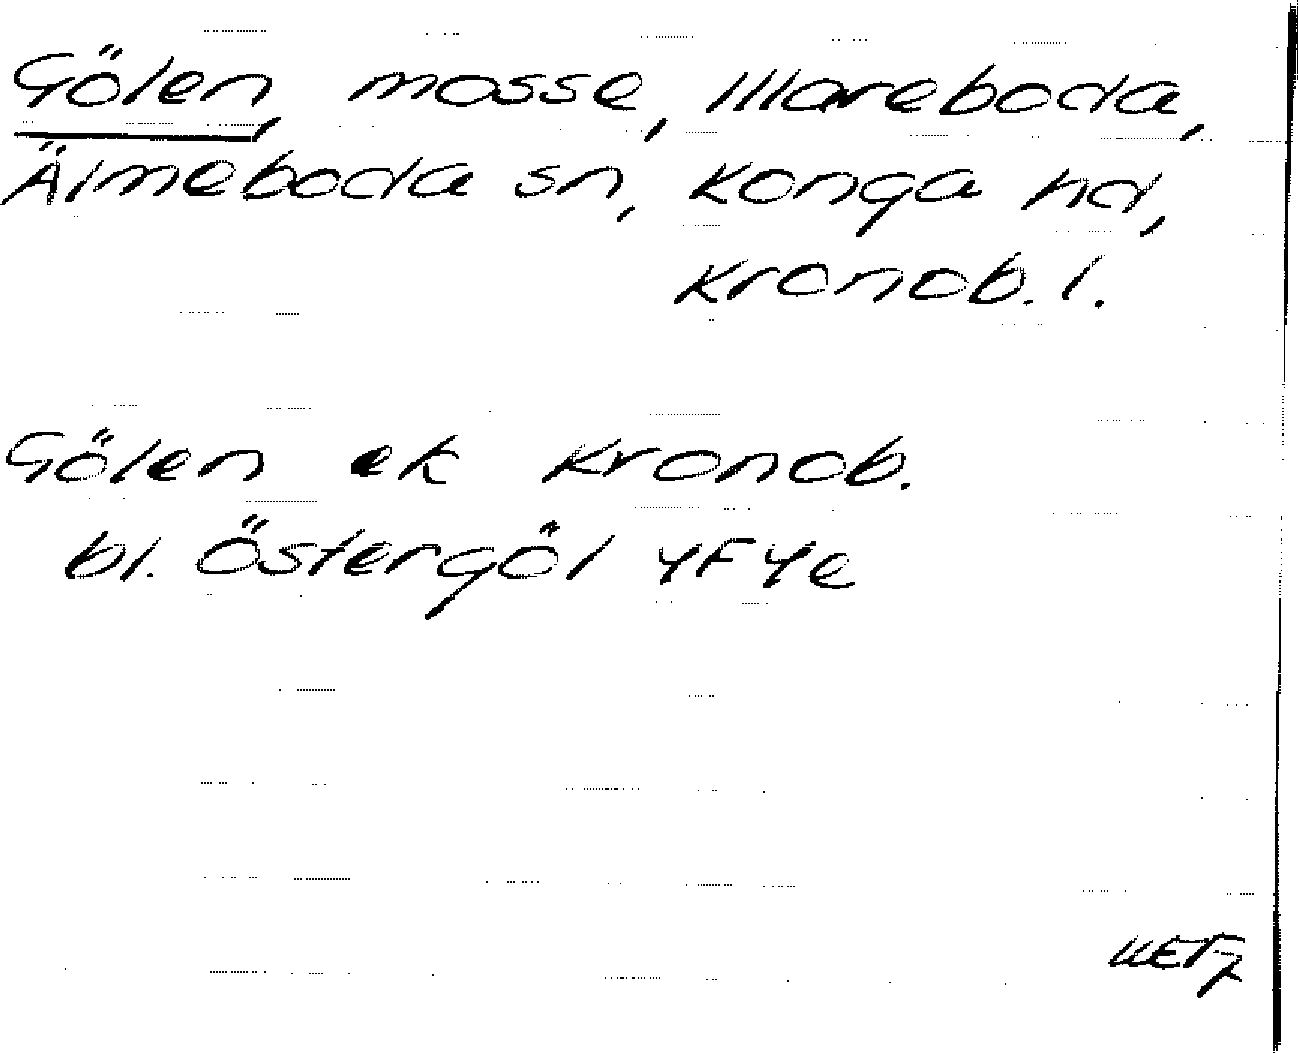 Gölen, mosse, Illareboda,
Älmeboda sn, Konga hd,
Kronob. l.
Gölen ek Kronob.
bl. Östergöl 4F4e